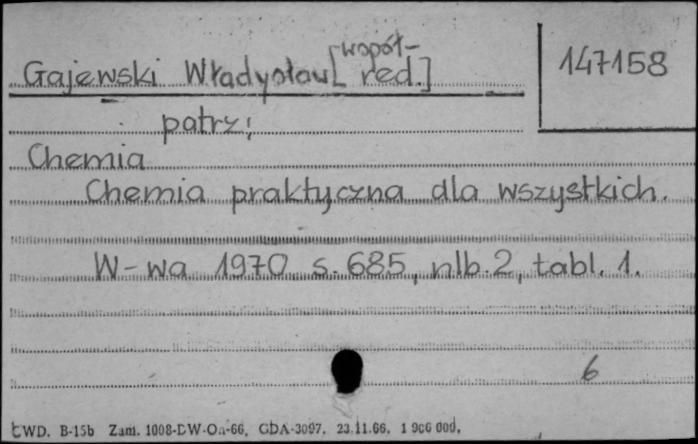 Gajewski Władysław [współ-
red.]
147158
patrz:
Chemia
Chemia praktyczna dla wszystkich.
W-wa 1970 s. 685, nlb. 2, tabl. 1.
6
CWD. B-15b Zam. 1008-DW-Oa-66. GDA-3097. 23.11.66. 1 966 000.